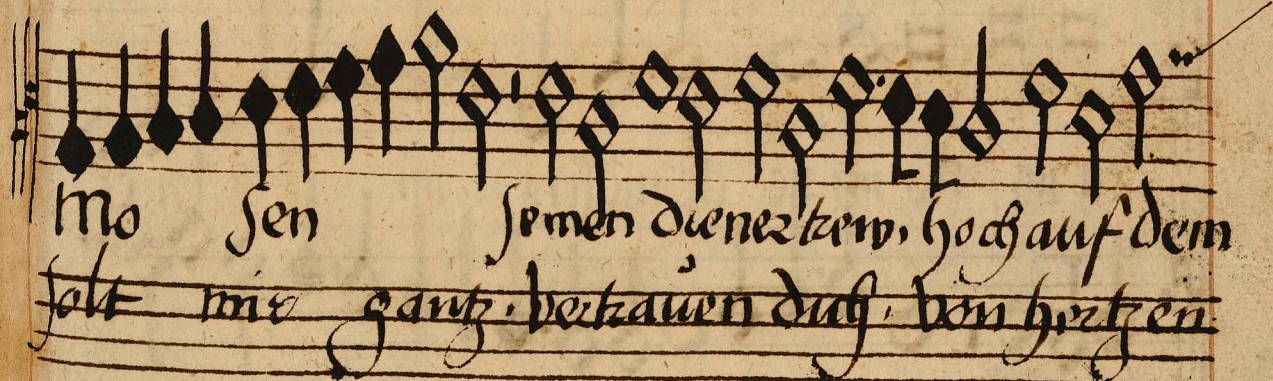 Mo sen seinen diener trew, hoch auf dem
solt mir gantz, vertrauen dich, von hertzen